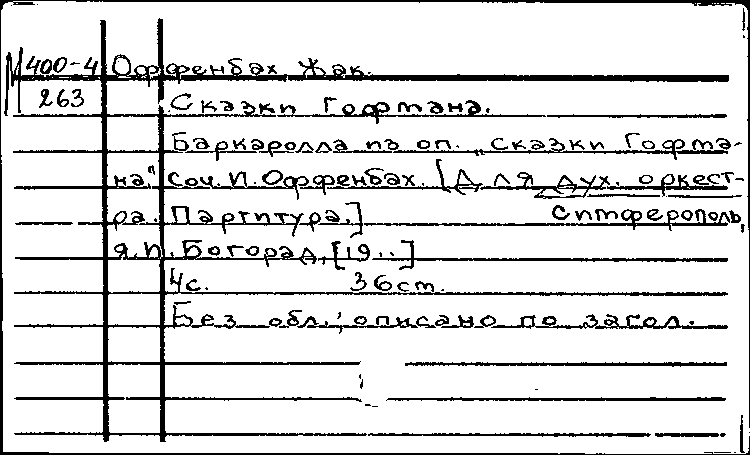 М 400-4 Оффенбах Жак.
263 Сказки Гофмана.
Баркаролла из оп. „Сказки Гофма-
на" соч. И. Оффенбах. [Для дух. оркест-
ра. Партитура.] Симферополь,
Я.П. Богорад, [19..]
4с. 36 ст.
Без обл.; описано по загол.